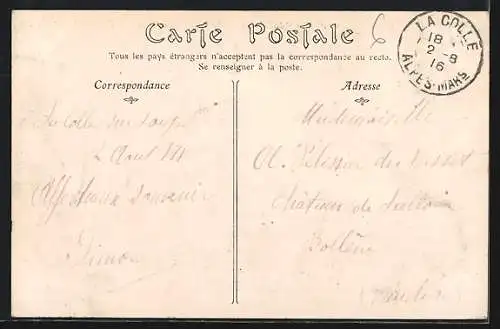 Carte Postale
6
LA COLLE
18
2 - 8
16
ALPES-MARmes
Tous les pays étrangers n'acceptent pas la correspondance au recto.
Se renseigner à la poste.
Correspondance
Adresse
La Colle sur Loup
2 Août
Affectueux Souvenir
Simon
Mademoiselle
Château de
Bollène